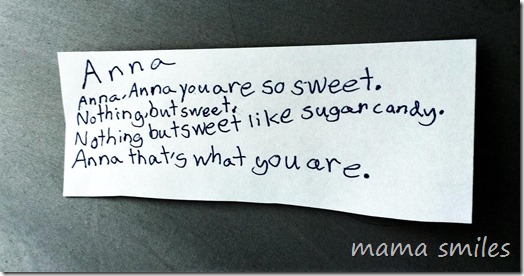 Anna
Anna, Anna you are so sweet.
Nothing, but sweet.
Nothing but sweet like sugar candy.
Anna that's what you are.
mama smiles